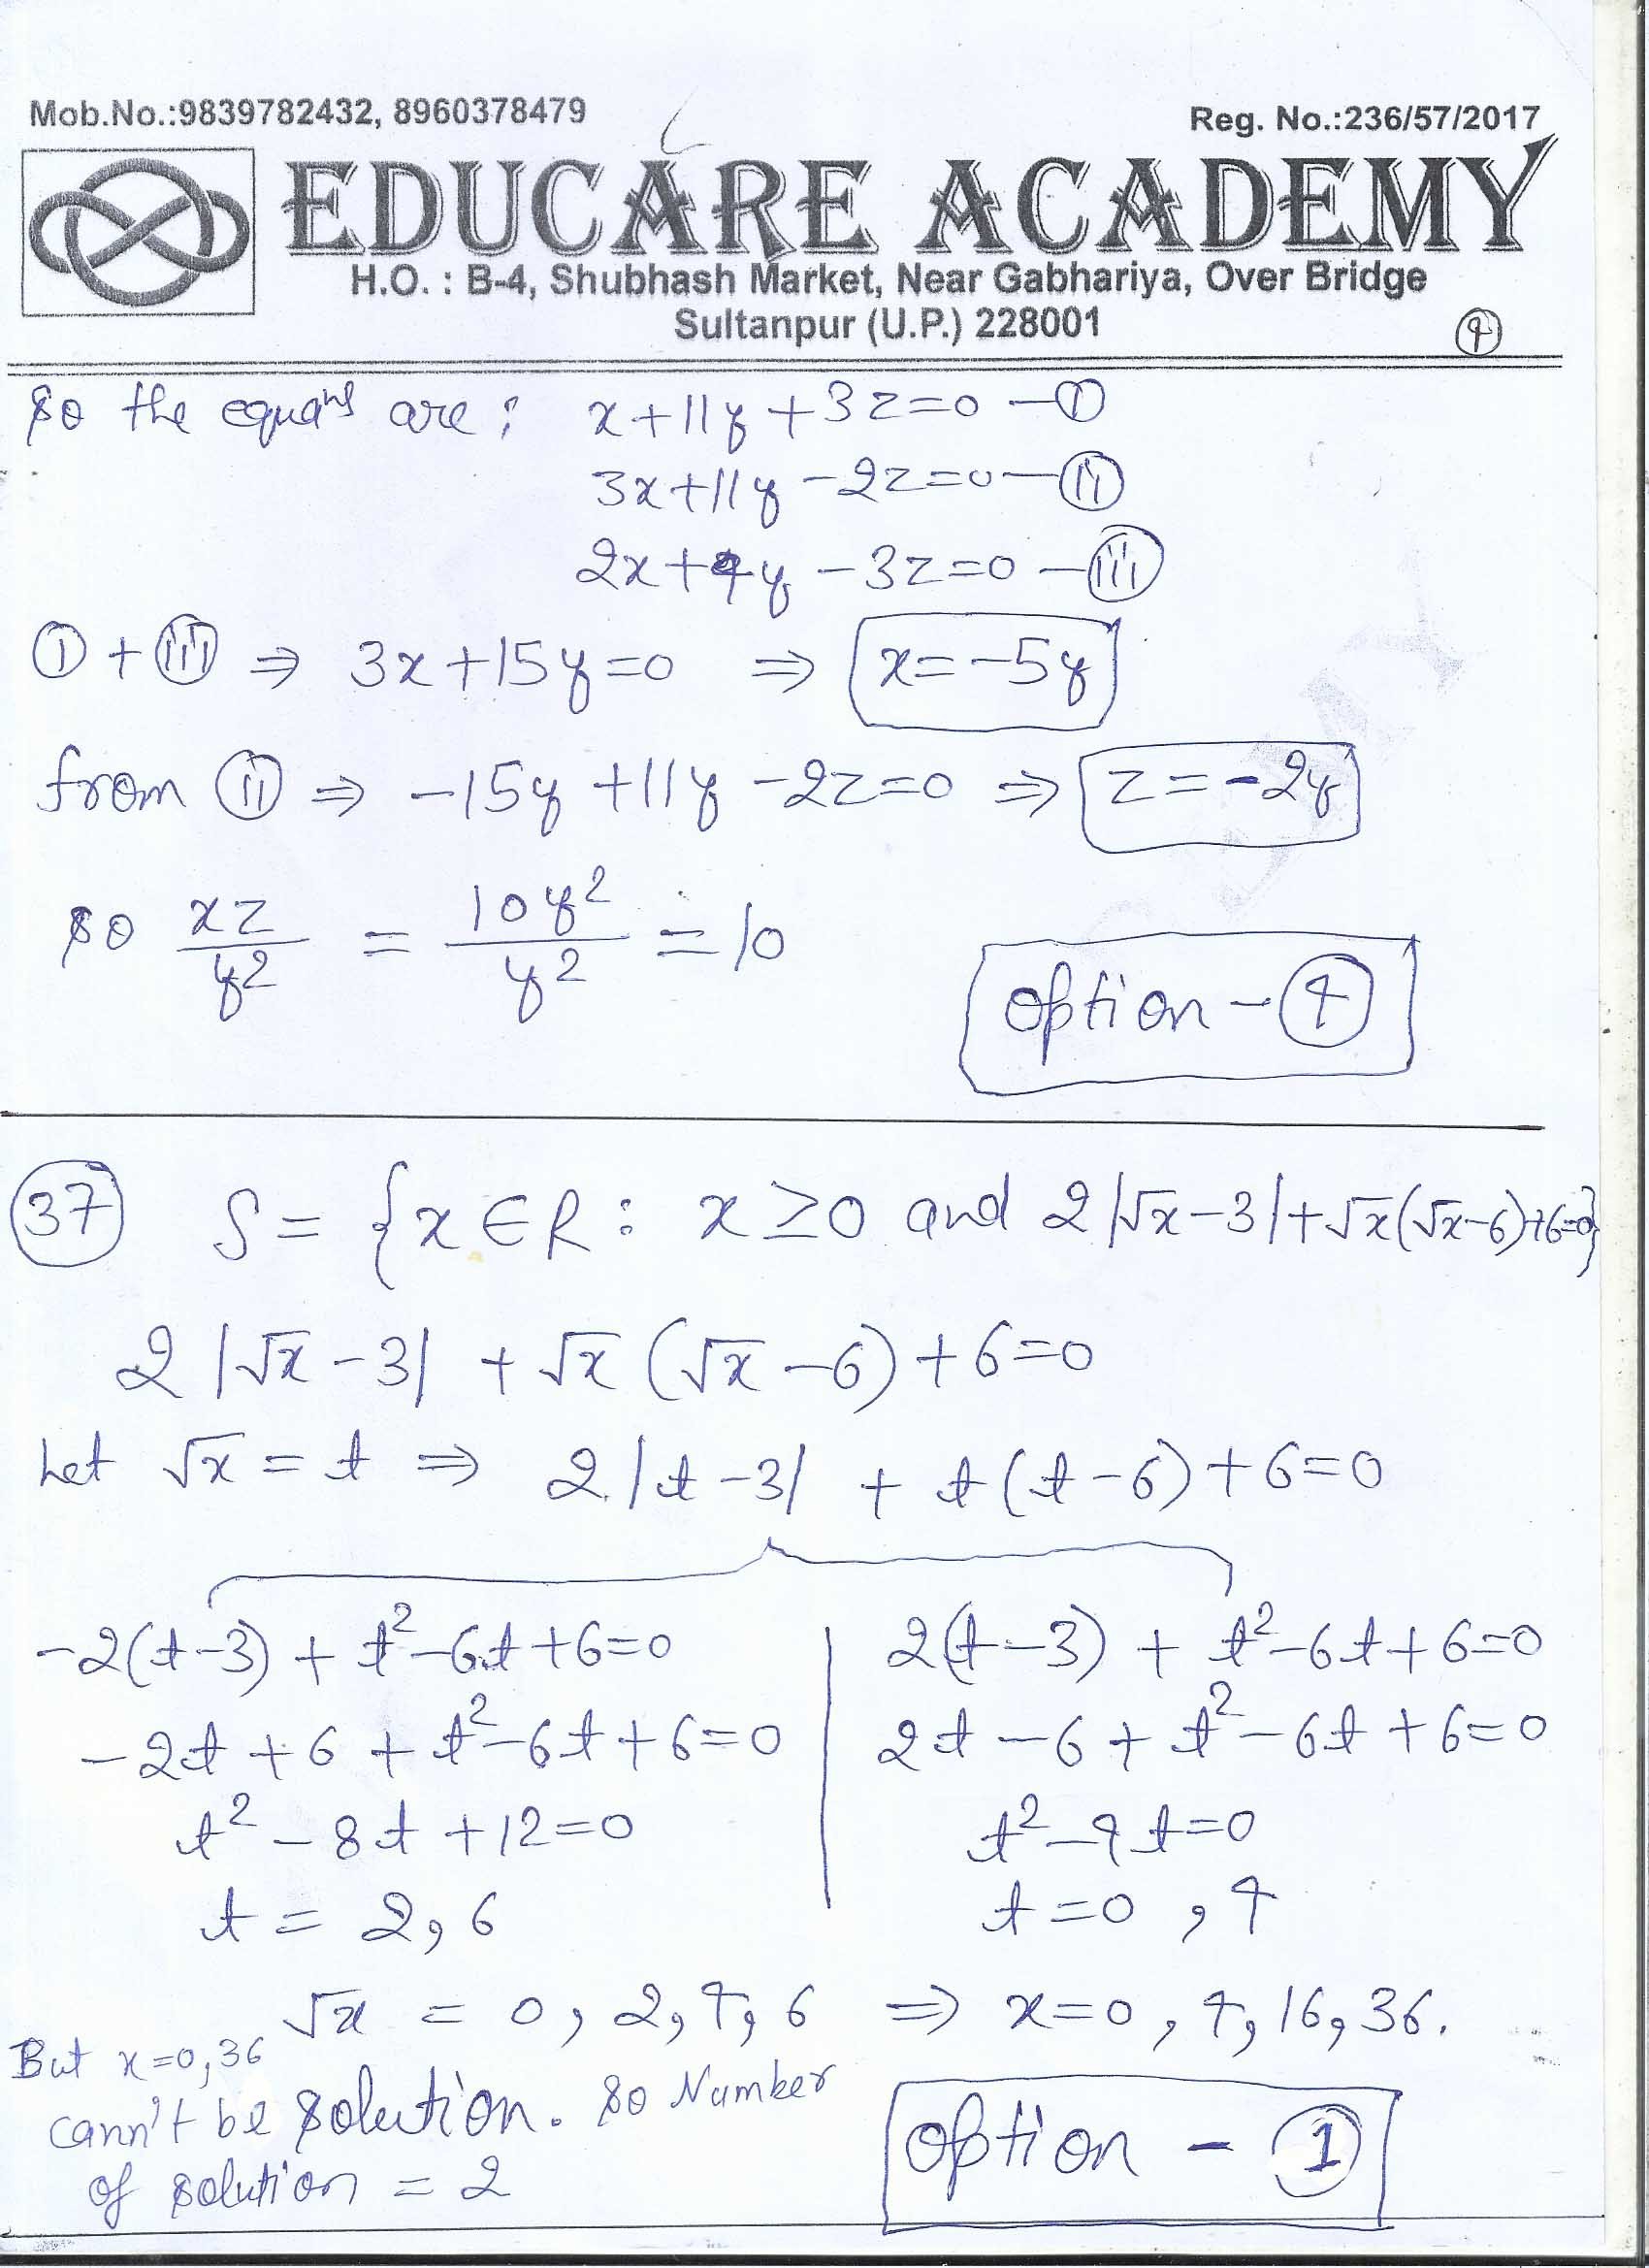 Mob.No.:9839782432, 8960378479
Reg. No.:236/57/2017
EDUCARE ACADEMY
H.O. : B-4, Shubhash Market, Near Gabhariya, Over Bridge
Sultanpur (U.P.) 228001
④
So the equans are: x+11y+3z=0 —Ⓘ
3x+11y-2z=0 —(II)
2x+4y-3z=0 —(III)
Ⓘ + (III) ⇒ 3x+15y=0 ⇒ x=-5y
from (II) ⇒ -15y+11y-2z=0 ⇒ z=-2y
so xz/y² = 10y²/y² = 10
option - ④
(37) S = {x∈R : x≥0 and 2|√x-3|+√x(√x-6)+6=0}
2|√x-3| + √x(√x-6)+6=0
Let √x = t ⇒ 2|t-3| + t(t-6)+6=0
-2(t-3) + t²-6t+6=0
-2t+6+t²-6t+6=0
t²-8t+12=0
t = 2,6
2(t-3) + t²-6t+6=0
2t-6+t²-6t+6=0
t²-4t=0
t=0,4
√x = 0,2,4,6 ⇒ x=0,4,16,36.
But x=0,36
cann't be solution. So Number
of solution = 2
option - ①